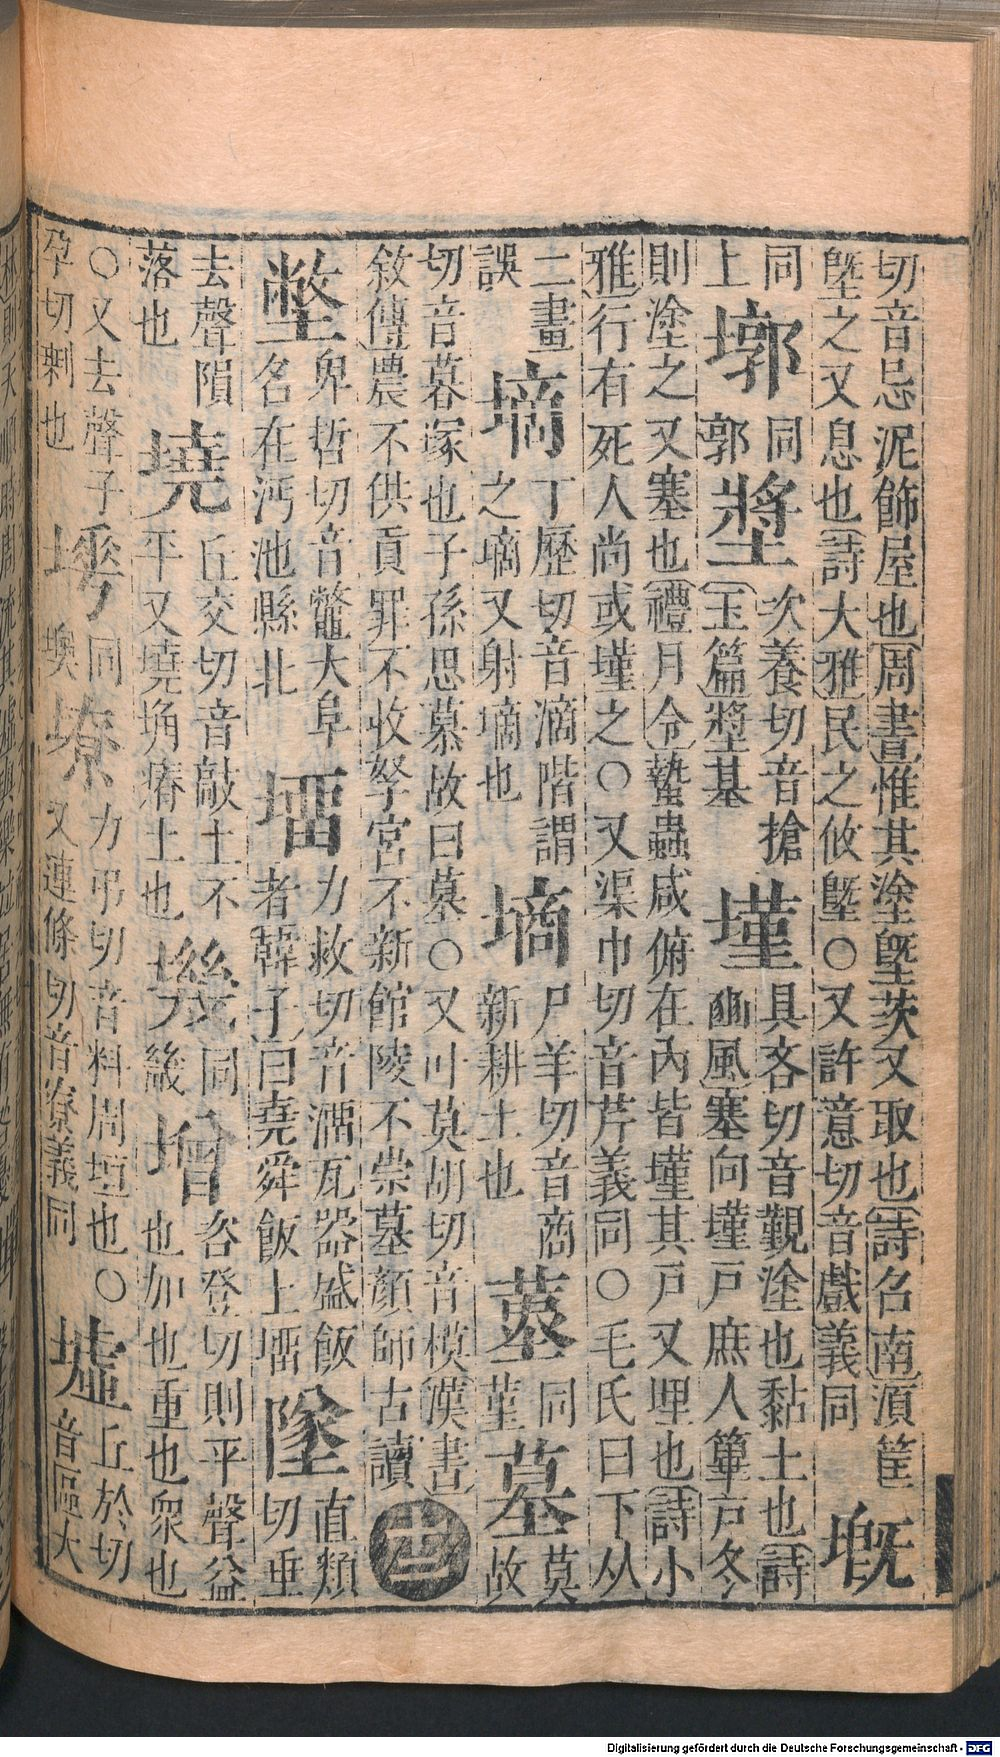 切音忌泥飾屋也周書惟其塗塈茨又取也詩召南頃筐
塈之又息也詩大雅民之攸塈○又許意切音戲義同
同上
墎
同郭
墏
次養切音搶
玉篇墏基
墐
具吝切音覲塗也黏土也詩
豳風塞向墐戶庶人篳戶冬
則塗之又塞也禮月令蟄蟲咸俯在內皆墐其戶又埋也詩小
雅行有死人尚或墐之○又渠巾切音芹義同○毛氏曰下从
二畫
誤
墑
丁歷切音滴階謂
之墑又射墑也
墒
尸羊切音商
新耕土也
同堇
墓
莫
故
切音暮冢也子孫思慕故曰墓○又叶莫胡切音模漢書
敘傳農不供貢罪不收孥宮不新館陵不崇墓顏師古讀
十二
卑哲切音鼈大阜
名在沔池縣北
塯
力救切音溜瓦器盛飯
者韓子曰堯舜飯土塯
墜
直類
切垂
去聲隕
落也
墝
丘交切音敲土不
平又墝埆瘠土也
同畿
增
咨登切則平聲益
也加也重也衆也
○又去聲子
孕切剩也
同
力弔切音料周垣也○
又連條切音寮義同
墟
丘於切
音區大
Digitalisierung gefördert durch die Deutsche Forschungsgemeinschaft - DFG